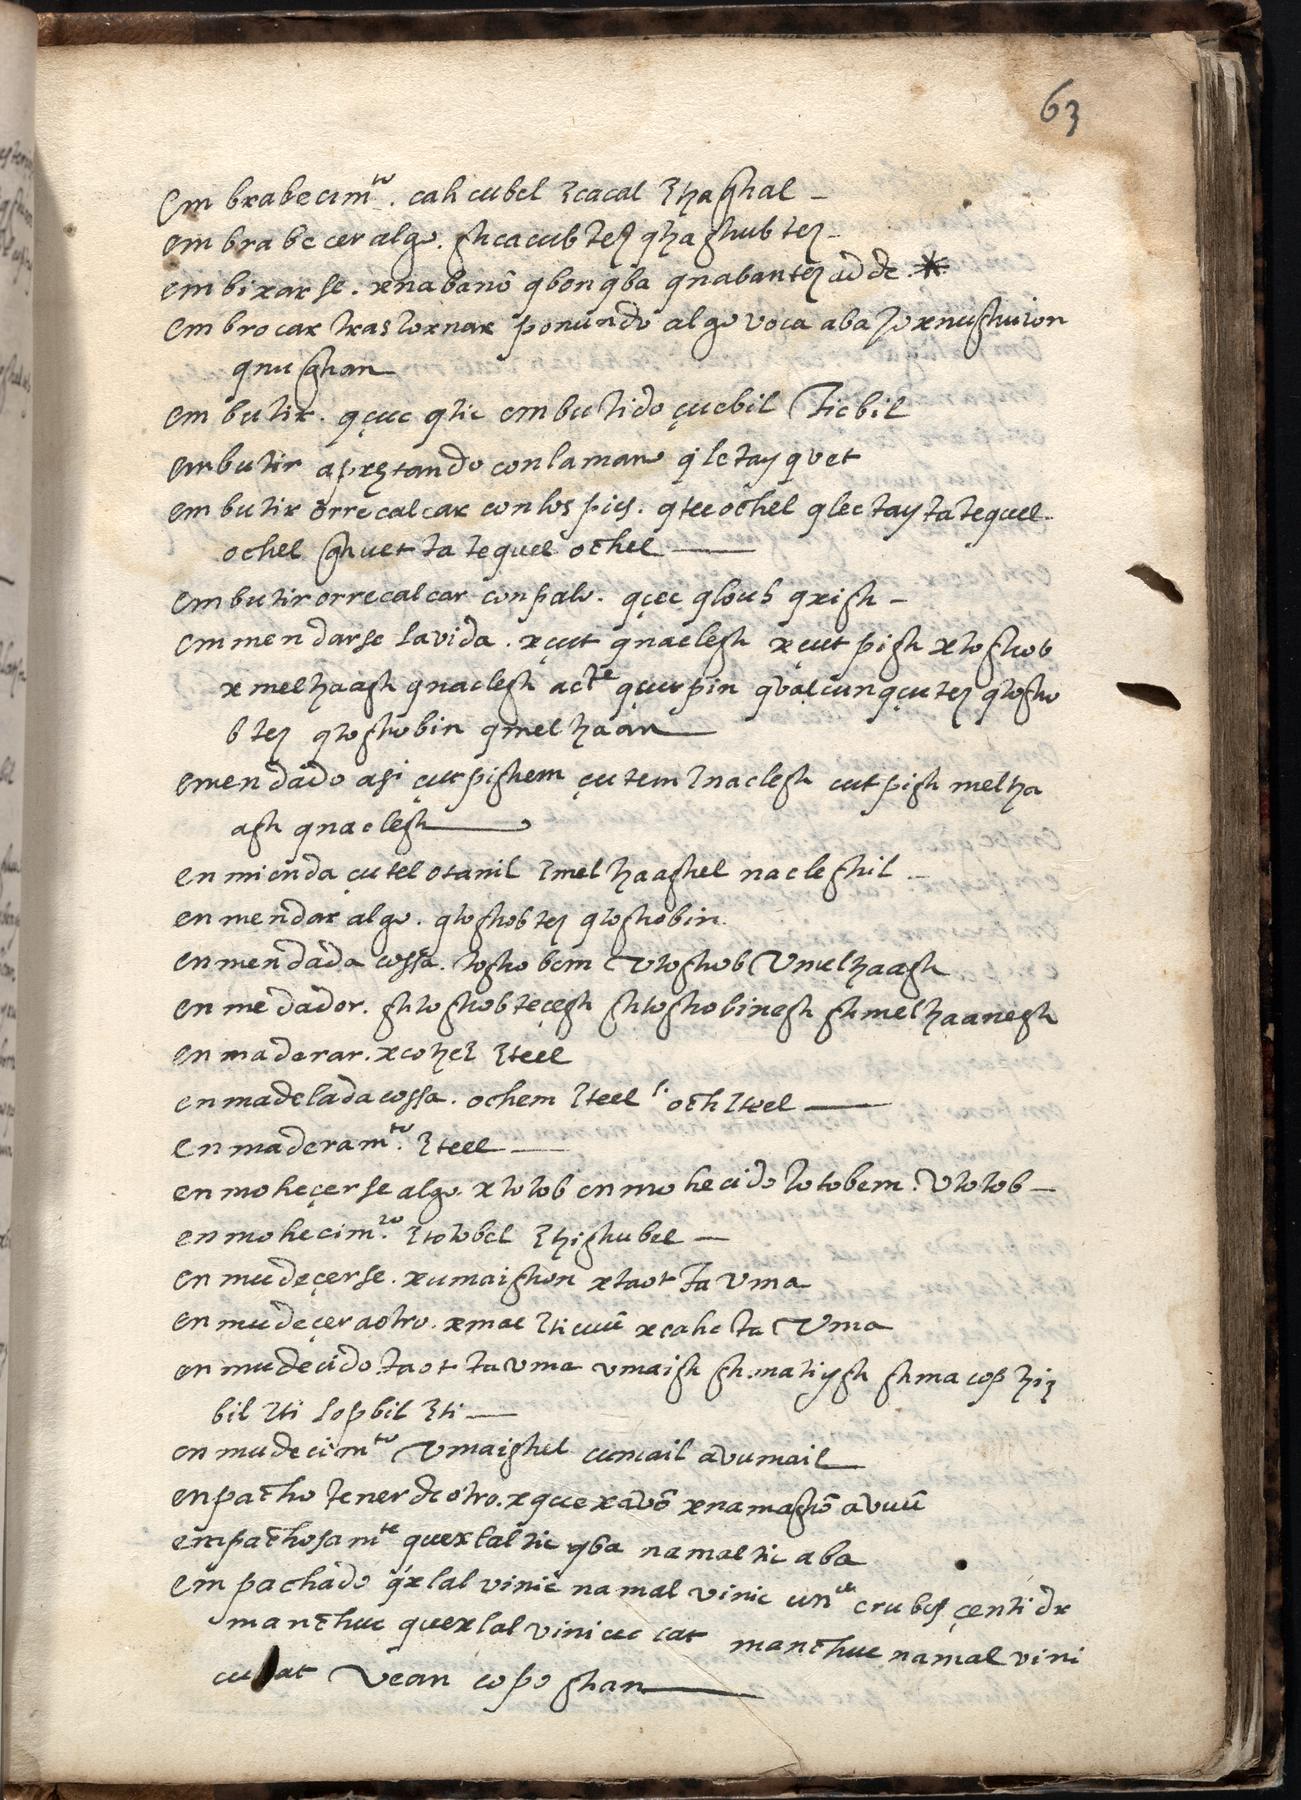 63
embrabecimto. cahcubel Zcacal Zhaghal
embrabecer algo. ghcacubtez qhaghubtez
embixarse. xnabanõ qbonqba qnabantez adde *
embrocar trastornar poniendo algo voca abajo xnughuion
qnughan
embutir. qçuc qtic embutido çucbil Ticbil
embutir apretando con la mano qletay quet
embutir orrecalcar con los pies. qtecochel qlectay tatequel
ochel ghuet ta tequel ochel
embutir orrecalcar con palo. qçec qlouh qxigh
emmendarse lavida. xçut qnaclegh xçut pigh xloghob
xmelhaagh qnaclegh acte qçutpin qualcun qçutez qlogho
btez qloghobin qmelhaan
emendado asi çutpighem çutem Znaclegh cutpigh melha
agh qnaclegh
enmienda çutel otanil Zmelhaaghel nacleghil
enmendar algo. qloghobtez qloghobin
enmendada cossa. loghobem Vloghob Vmelhaagh
enmedador. ghloghobteçegh ghloghobinegh ghmelhaanegh
enmaderar. xcohel Zteel
enmadelada cossa. ochem Zteel l. och Zteel
enmaderamto. Zteel
enmoheçerse algo. xtotob enmohecido totobem. Vtotob
enmohecimto. Ztotobel Zhighubel
enmudeçerse. xumaighon xtaot ta Vma
enmudeçer aotro. xmac Zticuũ xcahc ta Vma
enmudecido. taot ta vma vmaigh gh.matiygh ghmacop hiz
bil Zti lopbil Zti
enmudecimto Vmaighel cumail avumail
enpacho tener de otro. xquexavõ xnamaghõ avuũ
empachosamte quexlaltic qba namaltic aba
empachado qxlal vinic namal vinic
manchuc quexlal vinicuc cat manchuc namal vini
Vean copoghan